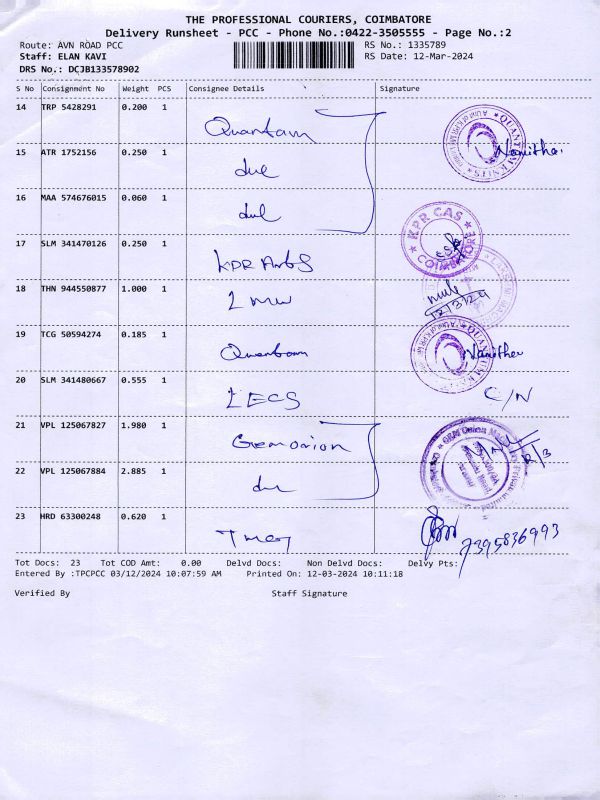 THE PROFESSIONAL COURIERS, COIMBATORE
Delivery Runsheet - PCC - Phone No.:0422-3505555 - Page No.:2
Route: AVN ROAD PCC RS No.: 1335789
Staff: ELAN KAVI RS Date: 12-Mar-2024
DRS No.: DCJB133578902
S No Consignment No Weight PCS Consignee Details Signature
14 TRP 5428291 0.200 1 Quantam
15 ATR 1752156 0.250 1 Nanitha
16 MAA 574676015 0.060 1
KPR CAS
COIMBATORE
17 SLM 341470126 0.250 1 KPR Arts
18 THN 944550877 1.000 1
12/3/24
19 TCG 50594274 0.185 1 Quantam
20 SLM 341480667 0.555 1 C/N
21 VPL 125067827 1.980 1 Gemorion
22 VPL 125067884 2.885 1
23 HRD 63300248 0.620 1 7395836993
Tot Docs: 23 Tot COD Amt: 0.00 Delvd Docs: Non Delvd Docs: Delvy Pts:
Entered By :TPCPCC 03/12/2024 10:07:59 AM Printed On: 12-03-2024 10:11:18
Verified By Staff Signature